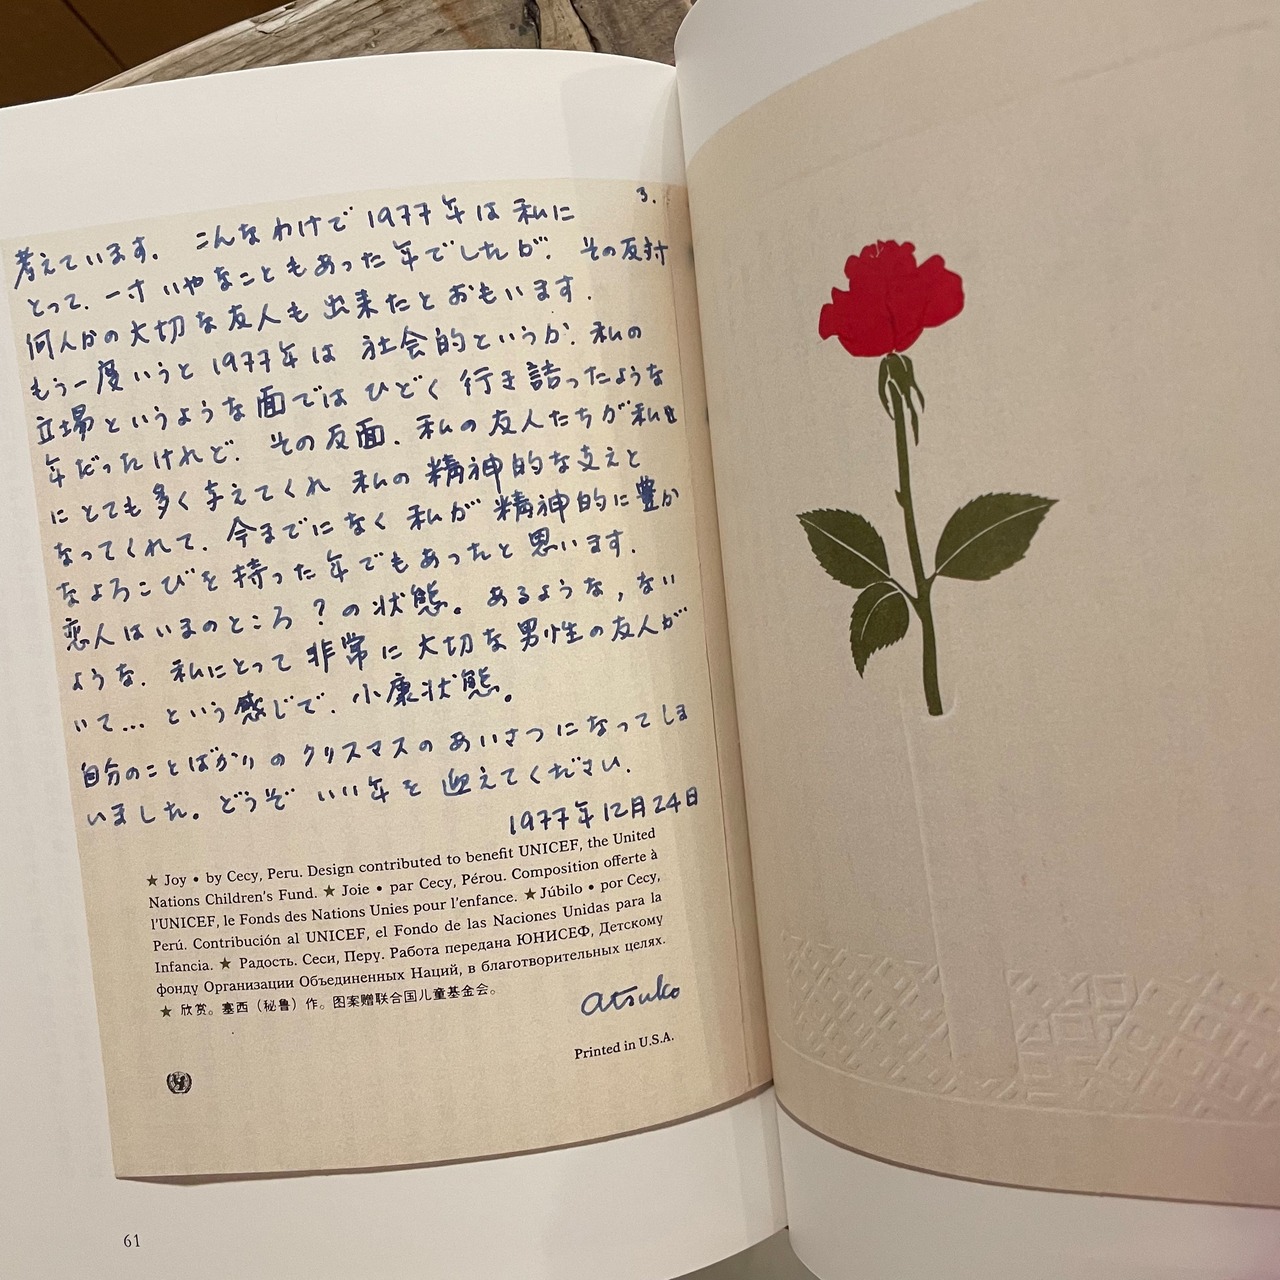 3.
考えています. こんなわけで 1977年は 私に
とって. 一寸いやなこともあった年でしたが. その反対
何人かの大切な友人も出来たとおもいます.
もう一度いうと 1977年は 社会的というか. 私の
立場というような面では ひどく 行き詰ったような
年だったけれど. その反面. 私の友人たちが 私
にとても多く与えてくれ 私の精神的な支えと
なってくれて. 今までになく 私が 精神的に豊か
なよろこびを持った年でもあったと思います.
恋人はいまのところ ? の状態。 あるような, ない
ような. 私にとって 非常に大切な男性の友人が
いて... という感じで. 小康状態。
自分のことばかりのクリスマスのあいさつになってしま
いました。どうぞ いい年を 迎えてください.
1977年12月24日
★ Joy • by Cecy, Peru. Design contributed to benefit UNICEF, the United
Nations Children's Fund. ★ Joie • par Cecy, Pérou. Composition offerte à
l'UNICEF, le Fonds des Nations Unies pour l'enfance. ★ Júbilo • por Cecy,
Perú. Contribución al UNICEF, el Fondo de las Naciones Unidas para la
Infancia. ★ Радость. Сеси, Перу. Работа передана ЮНИСЕФ, Детскому
фонду Организации Объединенных Наций, в благотворительных целях.
★ 欣赏。塞西（秘鲁）作。图案赠联合国儿童基金会。
atsuko
Printed in U.S.A.
61